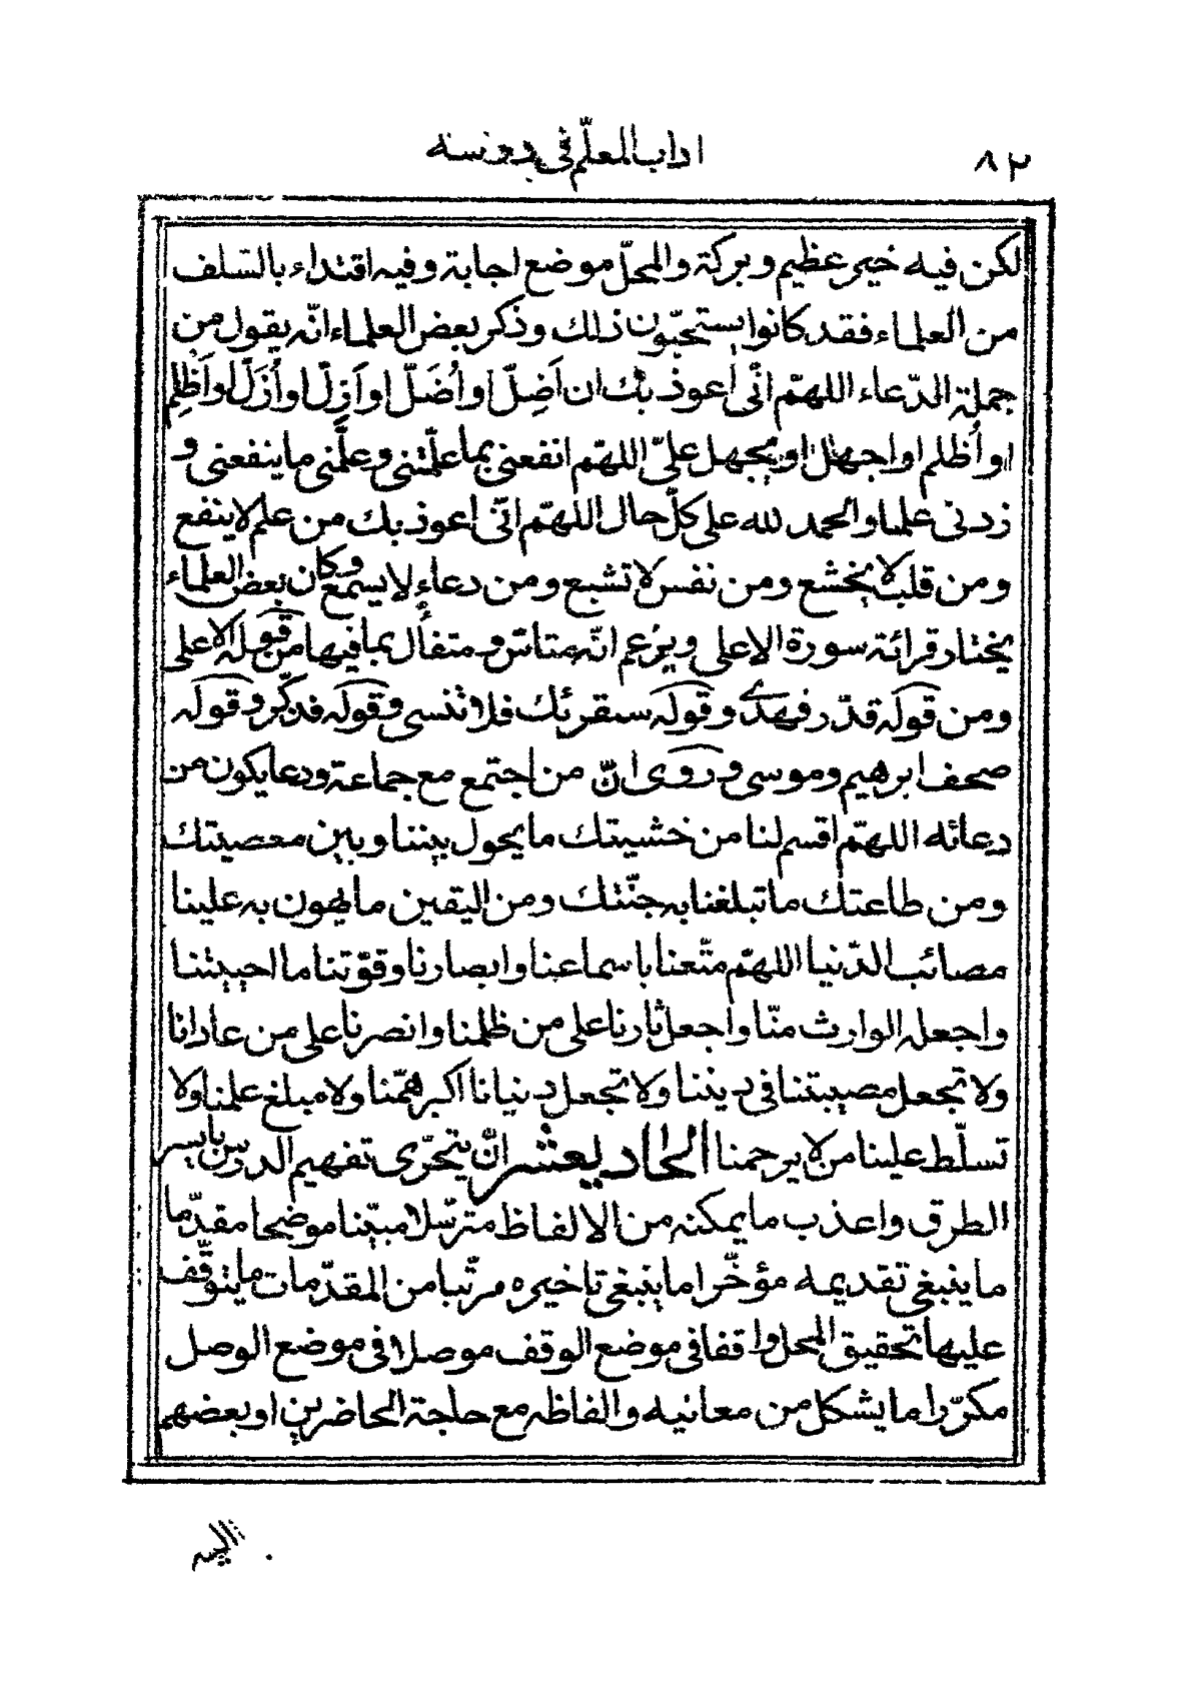 ٨٢
اداب المعلّم فی درسه
لكن فيه خير عظيم وبركة والمحلّ موضع اجابة وفيه اقتداء بالسّلف
من العلماء فقد كانوا يستحبّون ذلك وذكر بعض العلماء انّه يقول من
جملة الدّعاء اللهمّ انّی اعوذ بك ان اَضِلّ او اُضَلّ او اَزِلّ او اُزَلّ او اَظلِم
او اُظلم او اجهل او يجهل علیّ اللهمّ انفعنی بما علّمتنی وعلّمنی ما ينفعنی و
زدنی علما والحمد لله علی كلّ حال اللهمّ انّی اعوذ بك من علم لا ينفع
ومن قلب لا يخشع ومن نفس لا تشبع ومن دعاءٍ لا يسمع وكان بعض العلماء
يختار قرائة سورة الاعلی ويزعم انّه متاسّ ومتفأّل بما فيها من قوله الاعلی
ومن قوله قدّر فهدی وقوله سنقرئك فلا تنسی وقوله فذكّر وقوله
صحف ابرهيم وموسی وروی انّ من اجتمع مع جماعة ودعا يكون من
دعائه اللهمّ اقسم لنا من خشيتك ما يحول بيننا وبين معصيتك
ومن طاعتك ما تبلغنا به جنّتك ومن اليقين ما يهون به علينا
مصائب الدّنيا اللهمّ متّعنا باسماعنا وابصارنا وقوّتنا ما احييتنا
واجعله الوارث منّا واجعل ثارنا علی من ظلمنا وانصرنا علی من عادانا
ولا تجعل مصيبتنا فی ديننا ولا تجعل دنيانا اكبر همّنا ولا مبلغ علمنا ولا
تسلّط علينا من لا يرحمنا الحاد يعشر انّ يتحرّی تفهيم الدرس بايسر
الطرق واعذب ما يمكنه من الالفاظ مترسّلا مبيّنا موضحا مقدّما
ما ينبغی تقديمه مؤخّرا ما ينبغی تاخيره مرتّبا من المقدّمات ما يتوقّف
عليها تحقيق المحل واقفا فی موضع الوقف موصلا فی موضع الوصل
مكرّرا ما يشكل من معانيه والفاظه مع حاجة الحاضرين او بعضهم
اليه